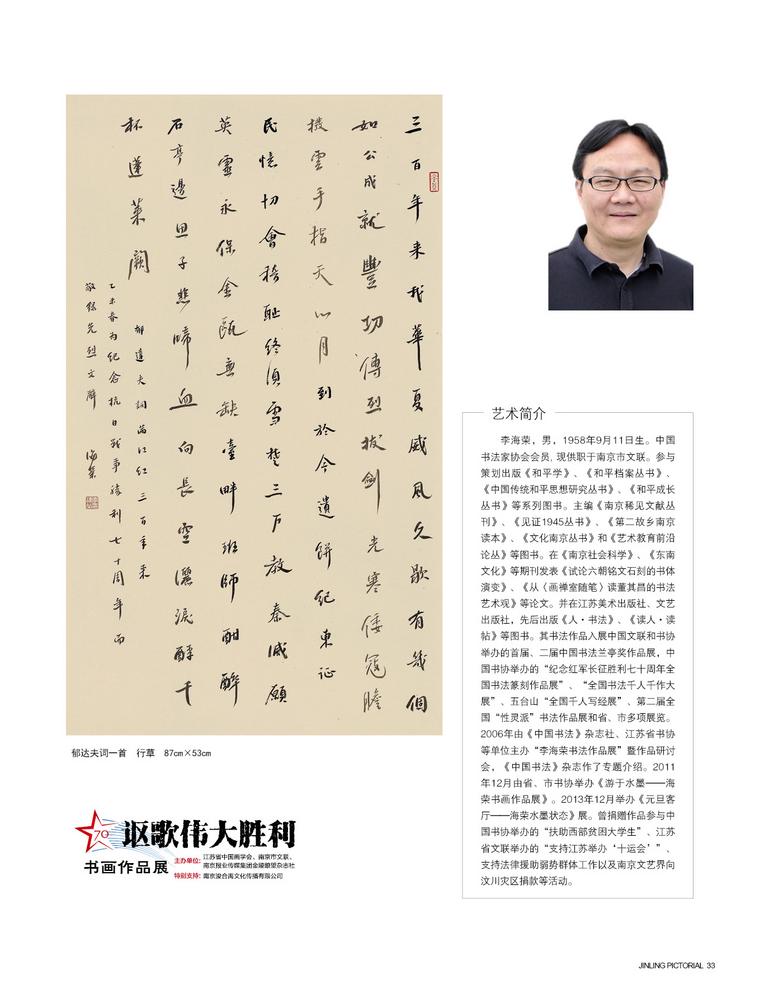 三百年來我華夏威風久歇有幾個
如公成就豐功偉烈拔劍光寒倭寇膽
撥雲手指天心月到於今遺餅紀東征
民懷切會稽恥終須雪楚三戶教秦滅願
英靈永保金甌無缺臺畔班師酣醉
石亭邊思子悲啼血向長空灑淚酹千
杯蓬萊闕
郁達夫詞滿江紅三百年來
乙未春为紀念抗日戰爭勝利七十周年而
敬錄先烈文辭 海榮
郁达夫词一首 行草 87cm×53cm
70
讴歌伟大胜利
书画作品展
主办单位：江苏省中国画学会、南京市文联、
南京报业传媒集团金陵瞭望杂志社
特别支持：南京浚合禹文化传播有限公司
艺术简介
李海荣，男，1958年9月11日生。中国
书法家协会会员，现供职于南京市文联。参与
策划出版《和平学》、《和平档案丛书》、
《中国传统和平思想研究丛书》、《和平成长
丛书》等系列图书。主编《南京稀见文献丛
刊》、《见证1945丛书》、《第二故乡南京
读本》、《文化南京丛书》和《艺术教育前沿
论丛》等图书。在《南京社会科学》、《东南
文化》等期刊发表《试论六朝铭文石刻的书体
演变》、《从〈画禅室随笔〉读董其昌的书法
艺术观》等论文。并在江苏美术出版社、文艺
出版社，先后出版《人·书法》、《读人·读
帖》等图书。其书法作品入展中国文联和书协
举办的首届、二届中国书法兰亭奖作品展，中
国书协举办的“纪念红军长征胜利七十周年全
国书法篆刻作品展”、“全国书法千人千作大
展”、五台山“全国千人写经展”、第二届全
国“性灵派”书法作品展和省、市多项展览。
2006年由《中国书法》杂志社、江苏省书协
等单位主办“李海荣书法作品展”暨作品研讨
会，《中国书法》杂志作了专题介绍。2011
年12月由省、市书协举办《游于水墨——海
荣书画作品展》。2013年12月举办《元旦客
厅——海荣水墨状态》展。曾捐赠作品参与中
国书协举办的“扶助西部贫困大学生”、江苏
省文联举办的“支持江苏举办‘十运会’”、
支持法律援助弱势群体工作以及南京文艺界向
汶川灾区捐款等活动。
JINLING PICTORIAL 33